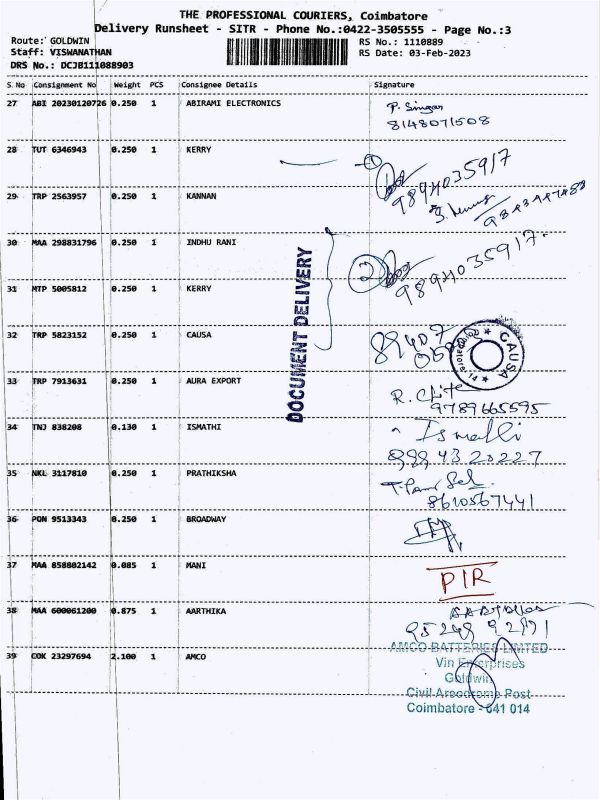 THE PROFESSIONAL COURIERS, Coimbatore
Delivery Runsheet - SITR - Phone No.:0422-3505555 - Page No.:3
Route: GOLDWIN RS No.: 1110889
Staff: VISWANATHAN RS Date: 03-Feb-2023
DRS No.: DCJB111088903
S.No Consignment No Weight PCS Consignee Details Signature
27 ABI 20230120726 0.250 1 ABIRAMI ELECTRONICS P. Singan
8148071508
28 TUT 6346943 0.250 1 KERRY 1
9894035917
29 TRP 2563957 0.250 1 KANNAN
30 MAA 298831796 0.250 1 INDHU RANI 2
9894035917
31 MTP 5005812 0.250 1 KERRY
DOCUMENT DELIVERY
32 TRP 5823152 0.250 1 CAUSA 89407
CAUSA
33 TRP 7913631 0.250 1 AURA EXPORT R.
9789665595
34 TNJ 838208 0.130 1 ISMATHI
9994320227
35 NKL 3117810 0.250 1 PRATHIKSHA
8610567441
36 PON 9513343 0.250 1 BROADWAY
37 MAA 858802142 0.085 1 MANI PIR
38 MAA 600061200 0.875 1 AARTHIKA
39 COK 23297694 2.100 1 AMCO
AMCO BATTERIES LIMITED
Vin Enterprises
Goldwin
Civil Areodrome Post
Coimbatore - 641 014